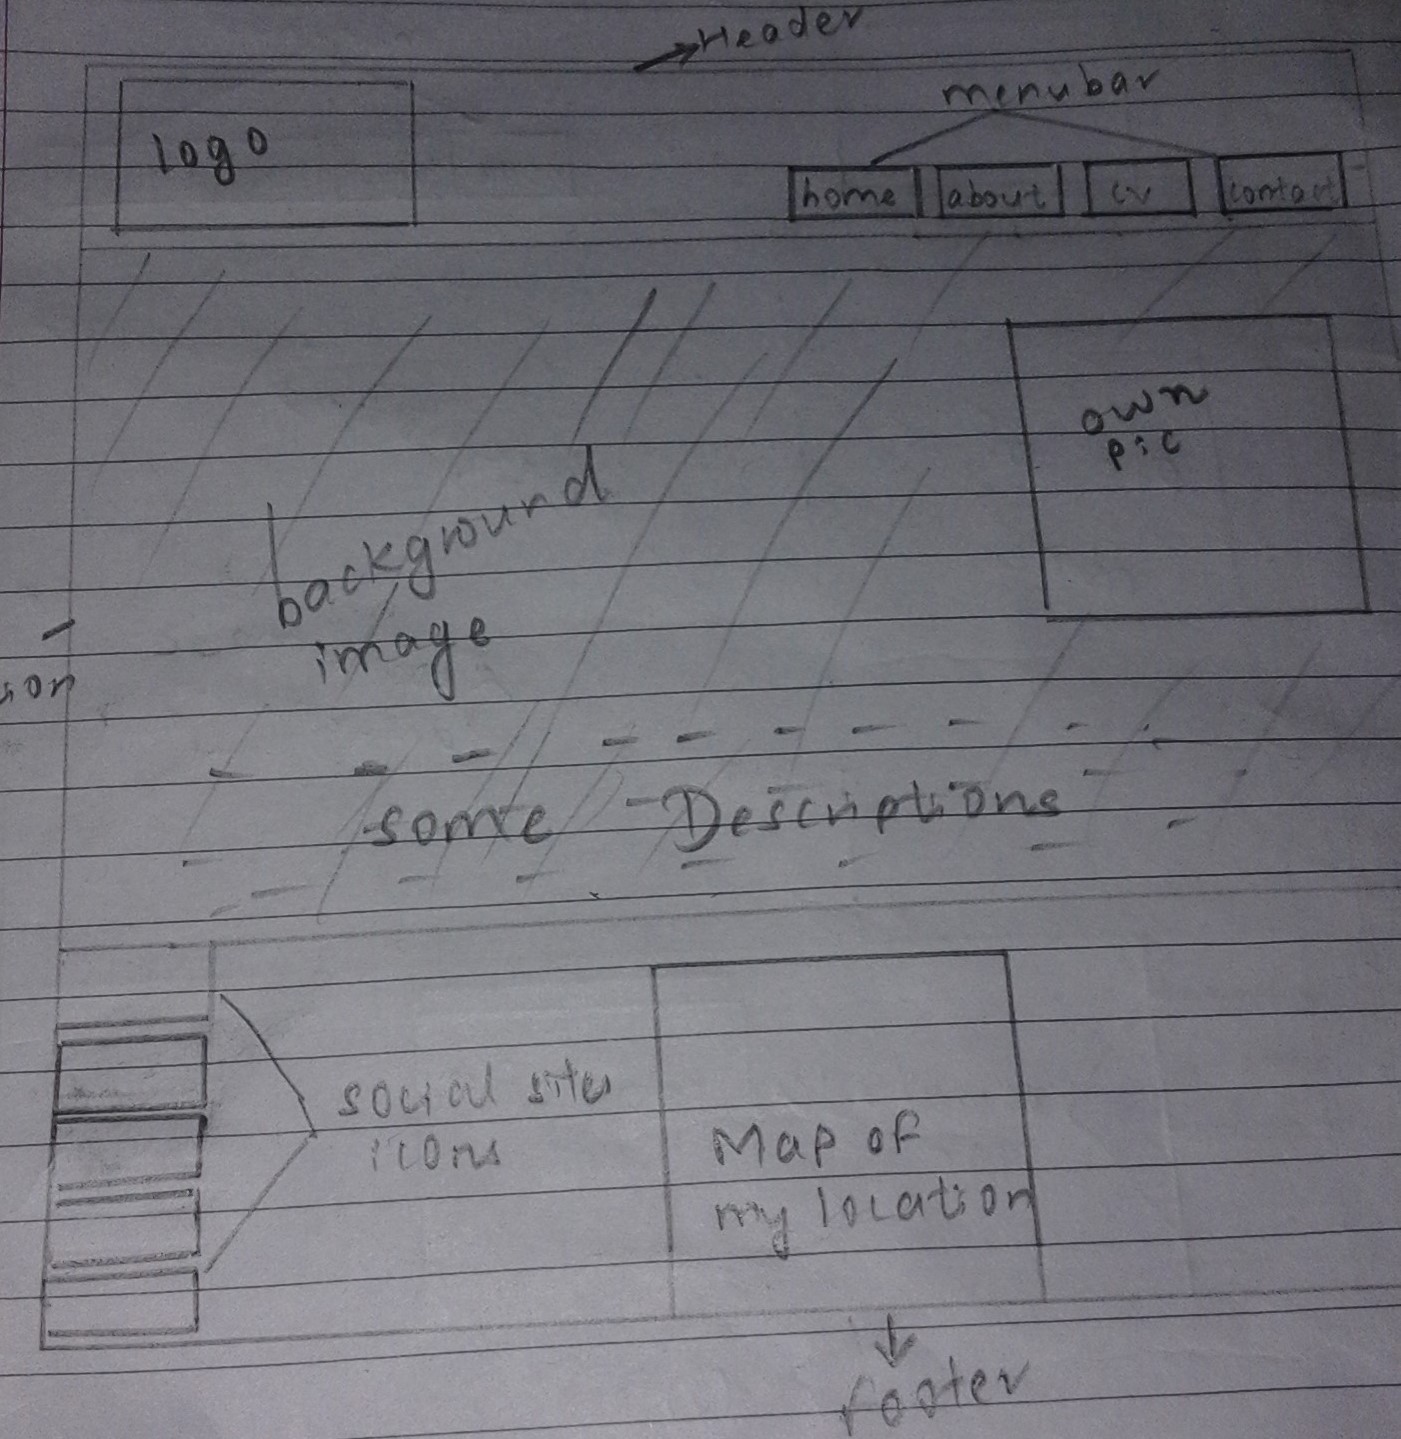 Header
menubar
logo
home about cv contact
own
pic
background
image
some Descriptions
social sites
icons
Map of
my location
footer